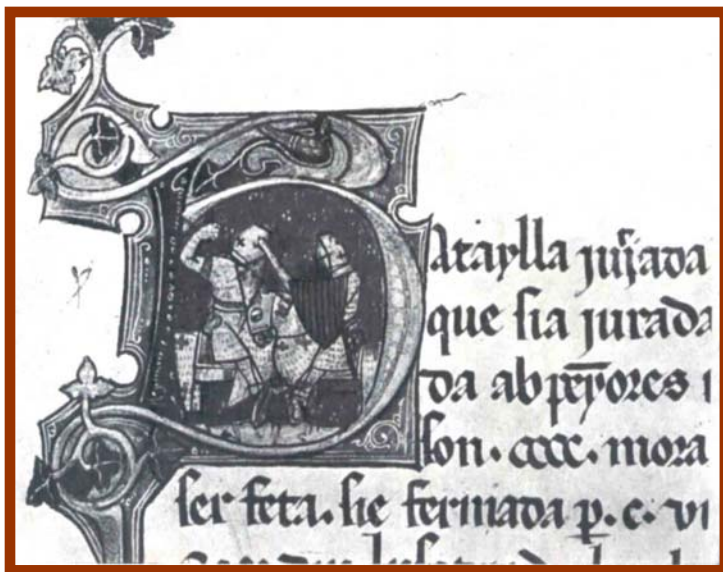 Bataylla jujada
que sia jurada
da ab peyores
son. cccc. mora
ser feta. sie fermada p. c. vi